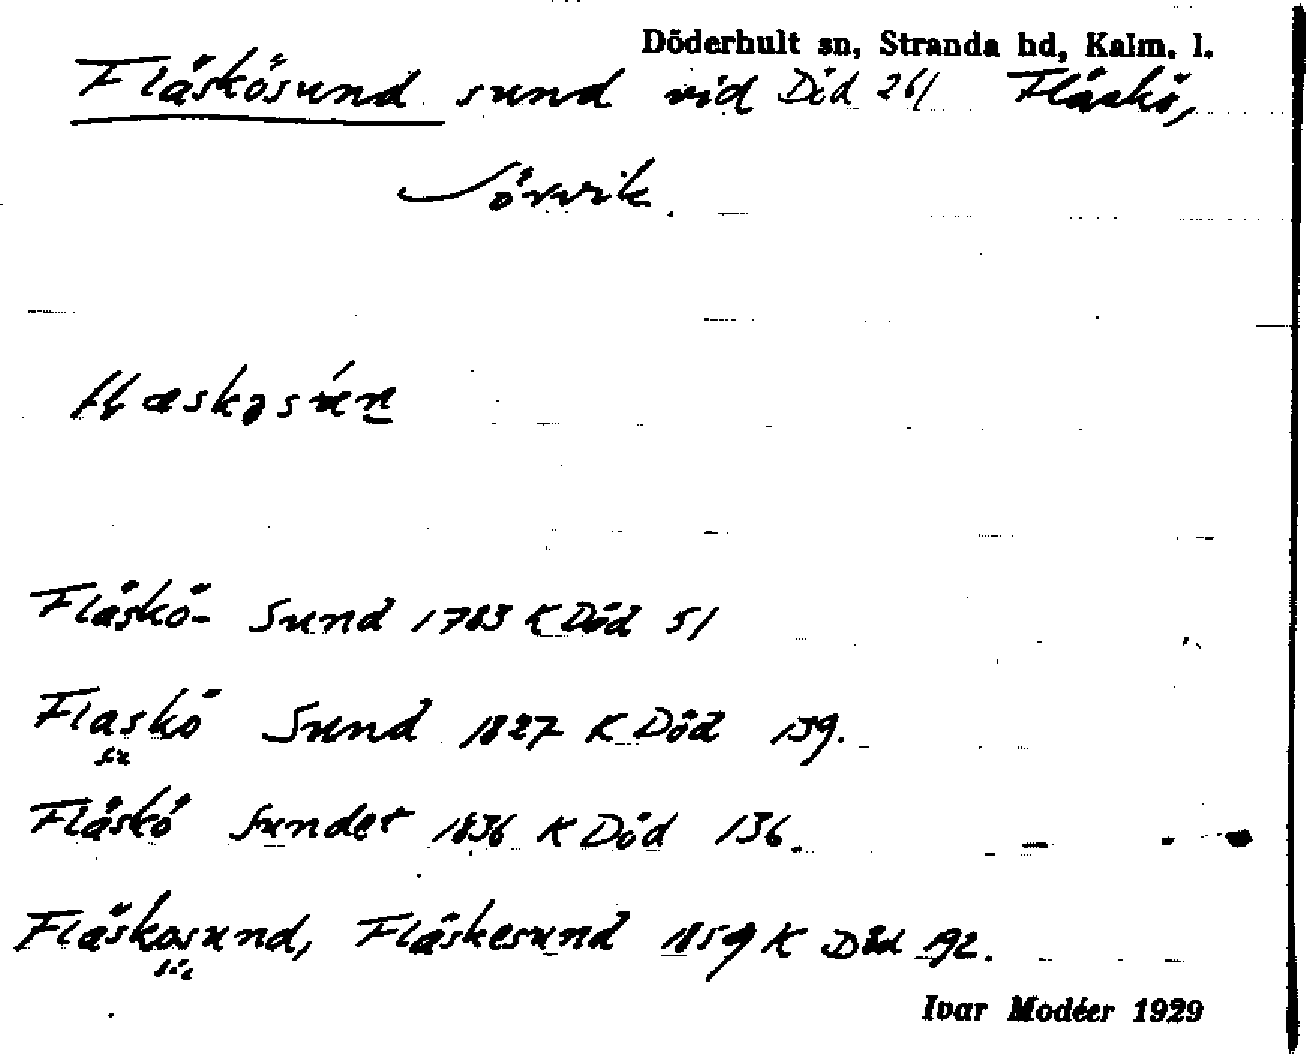 Döderhult sn, Stranda hd, Kalm. l.
Fläskösund sund vid Död 261 Fläskö,
Sörvik.
Fläskö- Sund 1783 K Död 51
Flaskö Sund 1827 K Död 139.
sic
Fläskö Sundet 1836 K Död 136.
Fläskosund, Fläskesund 1859 K Död 192.
sic
Ivar Modéer 1929